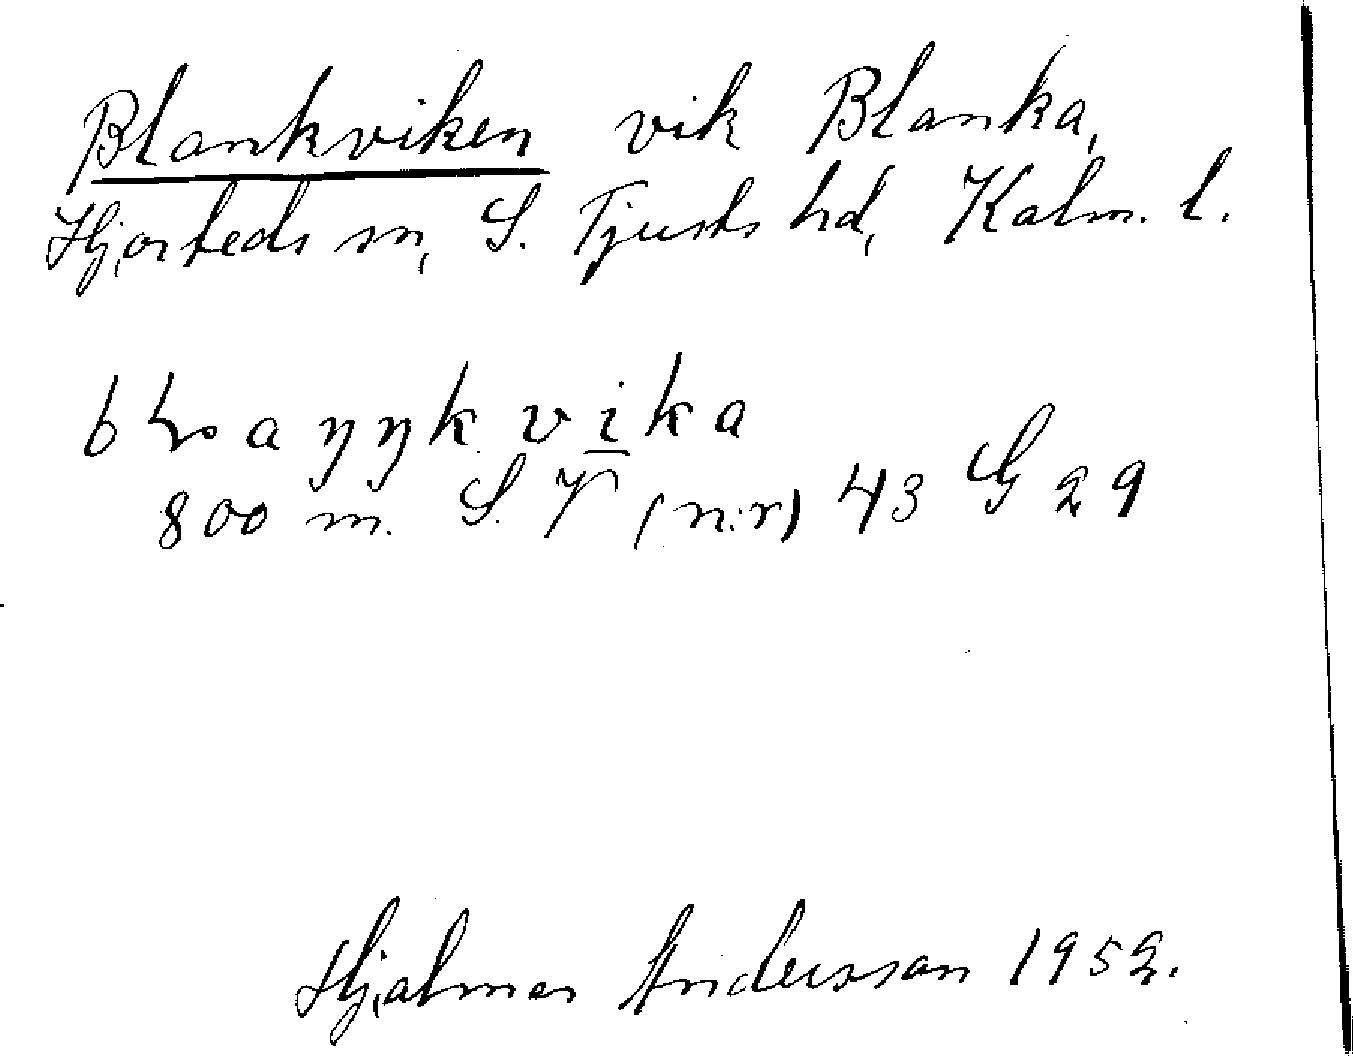 Blankviken vik Blanka,
Hjorteds sn, S. Tjusts hd, Kalm. l.
800 m. S. V (n:r) 43 G 29
Hjalmar Andersson 1952.